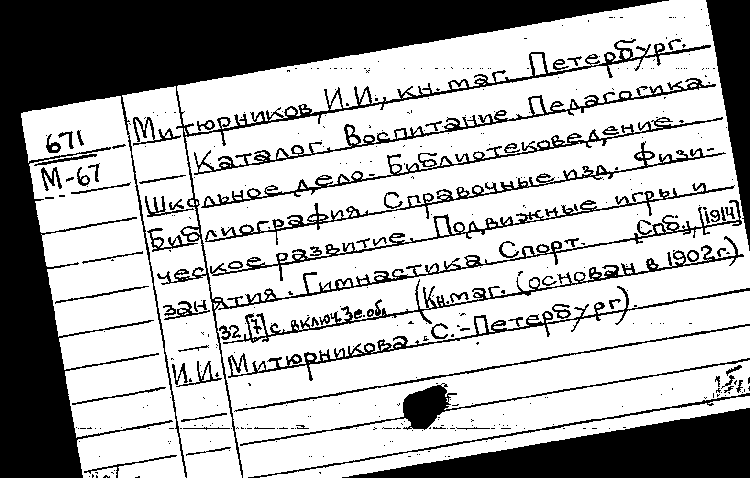 671
М-67
Митюрников, И.И., кн. маг. Петербург.
Каталог. Воспитание. Педагогика.
Школьное дело. Библиотековедение.
Библиография. Справочные изд. Физи-
ческое развитие. Подвижные игры и
занятия. Гимнастика. Спорт. Спб., [1914]
32, [7] с. включ. 3е обл. (Кн. маг. (основан в 1902 г.)
И.И. Митюрникова. С.-Петербург).